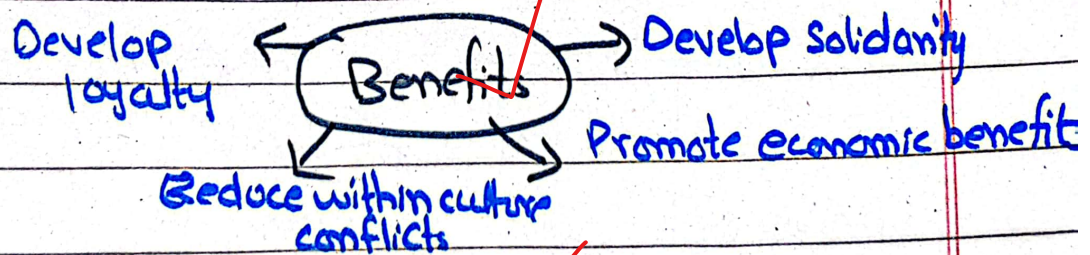 Develop
loyalty
Benefits
Develop solidarity
Promote economic benefit
Reduce within culture
conflicts